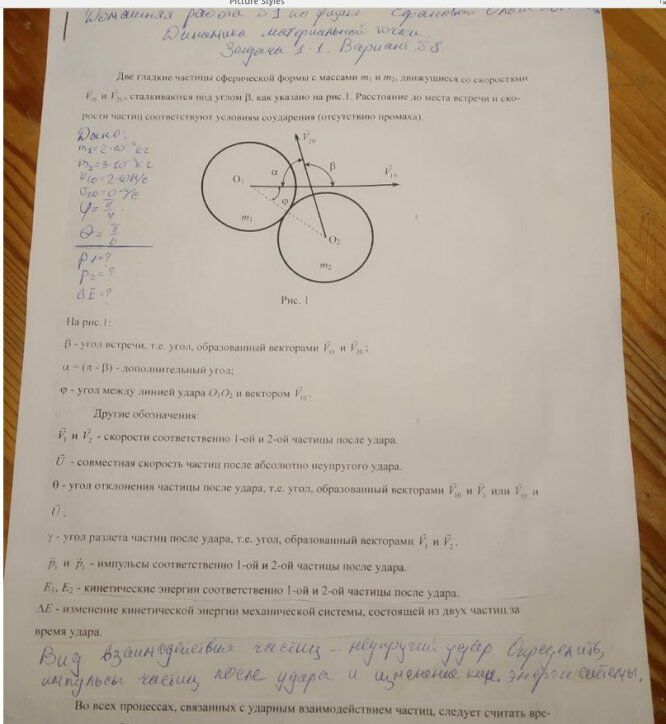 Picture Styles
Домашняя работа №1 по физике
Динамика материальной точки.
Задача 1-1. Вариант №8.
Две гладкие частицы сферической формы с массами m₁ и m₂, движущиеся со скоростями
V⃗₁₀ и V⃗₂₀, сталкиваются под углом β, как указано на рис.1. Расстояние до места встречи и ско-
рости частиц соответствуют условиям соударения (отсутствию промаха).
Дано:
m₁=2·10⁻³кг
m₂=3·10⁻³кг
υ₁₀=2·10м/с
υ₂₀=0 м/с
φ=π/4
θ=π/6
p₁=?
p₂=?
ΔE=?
V⃗₂₀
α
β
V⃗₁₀
O₁
φ
m₁
O₂
m₂
Рис. 1
На рис.1:
β - угол встречи, т.е. угол, образованный векторами V⃗₁₀ и V⃗₂₀;
α = (π - β) - дополнительный угол;
φ - угол между линией удара O₁O₂ и вектором V⃗₁₀.
Другие обозначения:
V⃗₁ и V⃗₂ - скорости соответственно 1-ой и 2-ой частицы после удара.
U⃗ - совместная скорость частиц после абсолютно неупругого удара.
θ - угол отклонения частицы после удара, т.е. угол, образованный векторами V⃗₁₀ и V⃗₁ или V⃗₁₀ и
U⃗.
γ - угол разлета частиц после удара, т.е. угол, образованный векторами V⃗₁ и V⃗₂.
p⃗₁ и p⃗₁ - импульсы соответственно 1-ой и 2-ой частицы после удара.
E₁, E₂ - кинетические энергии соответственно 1-ой и 2-ой частицы после удара.
ΔE - изменение кинетической энергии механической системы, состоящей из двух частиц за
время удара.
Вид взаимодействия частиц – неупругий удар. Определить,
импульсы частиц после удара и изменение кин. энергии системы.
Во всех процессах, связанных с ударным взаимодействием частиц, следует считать вре-